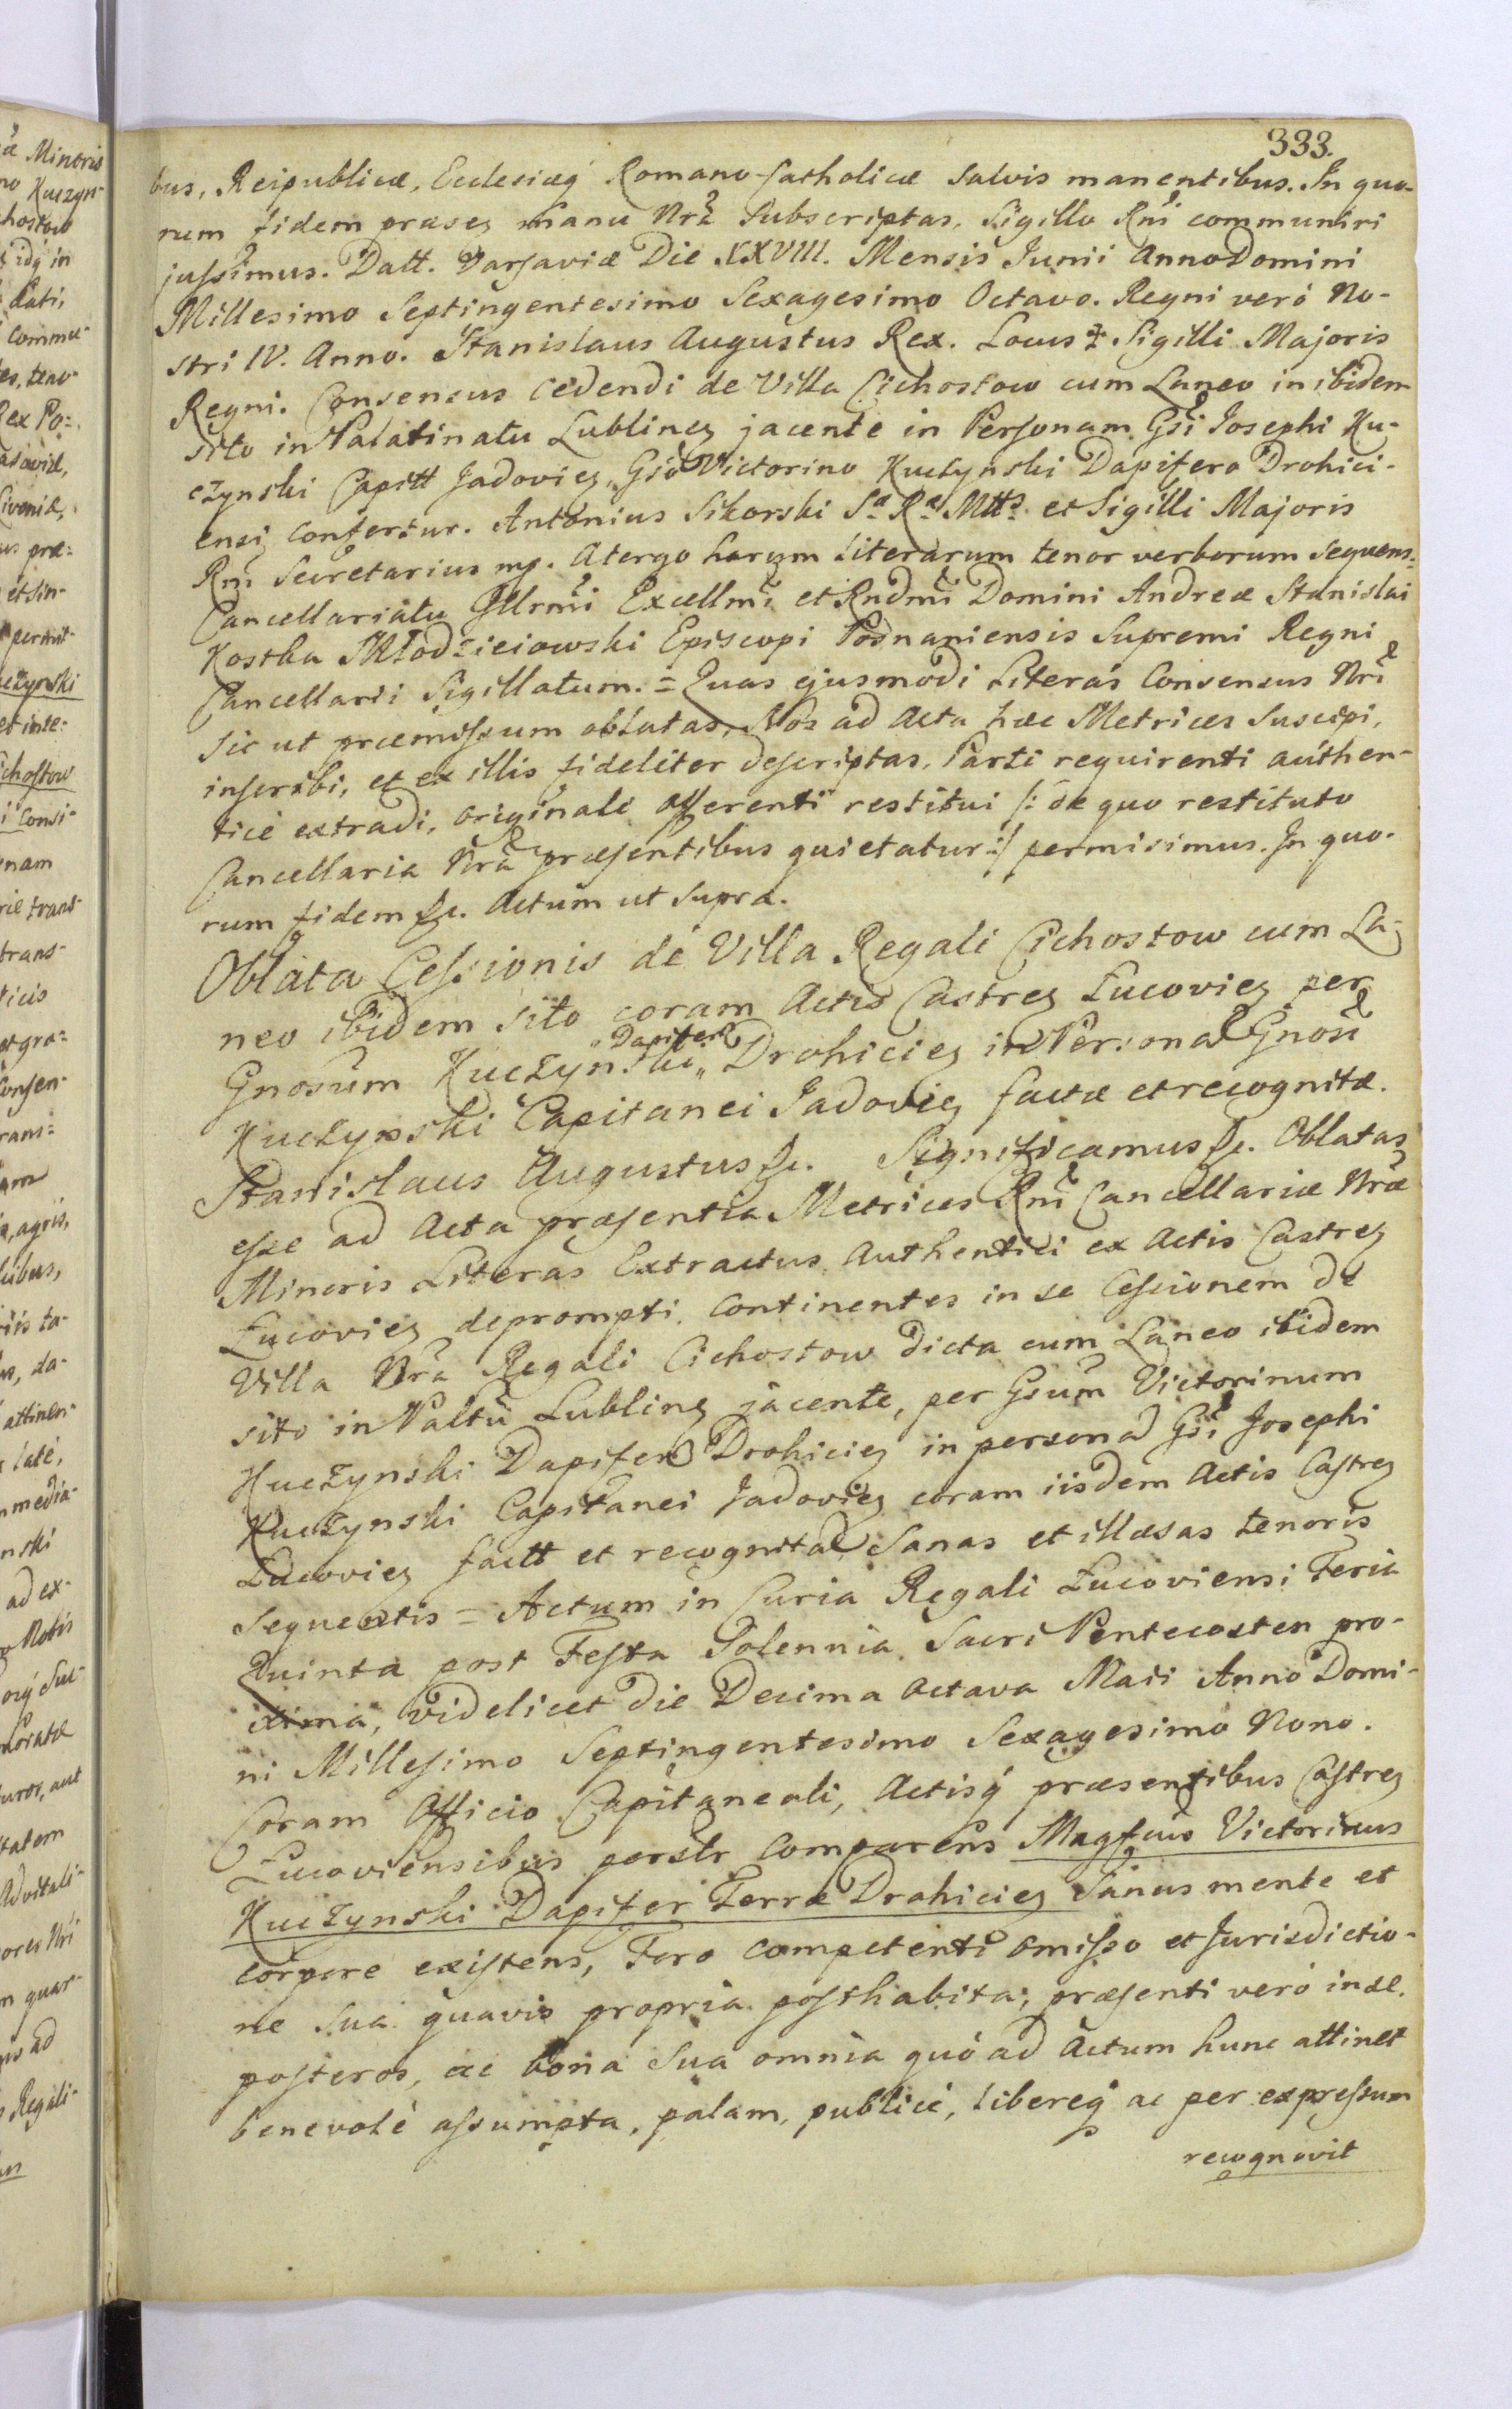 333.
bus, Reipublicæ, Ecclesiæq́ Romano-Catholicæ salvis manentibus. In quo-
rum fidem præsez manu Nrã Subscriptas, Sigillo Rnĩ communiri
jussimus. Datt. Varsaviæ Die XXVIII. Mensis Junii Anno Domini
Millesimo Septingentesimo Sexagesimo Octavo. Regni verò No-
stri IV. Anno. Stanislaus Augustus Rex. Locus ‡ Sigilli Majoris
Regni. Consensus cedendi de Villa Cichostow cum Laneo in ibidem
sito in Palatinatu Lublinez jacente in Personam Gsĩ Josephi Ku-
czynski Capitt Jadoviez, Gsõ Victorino Kuczynski Dapifero Drohici-
ensi confertur. Antonius Sikorski Sæ Ræ Mttis et Sigilli Majoris
Rnĩ Secretarius mp. Atergo harum Literarum tenor verborum sequens:
Cancellariatu Jllrmĩ Excellmĩ et Rndmĩ Domini Andreæ Stanislai
Kostka Młodzieiowski Episcopi Posnaniensis Supremi Regni
Cancellarii Sigillatum. = Quas ejusmodi Literas Consensus Nrĩ
sic ut præmissum oblatas, Nos ad Acta hæc Metrices suscipi,
inscribi, et ex illis fideliter descriptas, Parti requirenti authen-
ticè extradi, originali offerenti restitui /: de quo restituto
Cancellaria Nrã præsentibus quietatur :/ permisimus. In quo-
rum fidem &c. Actum ut supra.
Oblata Cessionis de Villa Regali Cichostow cum La-
neo ibidem sito coram Actis Castrez Łucoviez per
Dapiferũ
Gnosum Kuczynski „ Drohiciez in Personã Gnosĩ
Kuczynski Capitanei Jadoviez factæ et recognitæ.
Stanislaus Augustus &c. Significamus &c. Oblatas
esse ad Acta præsentia Metrices Rnĩ Cancellariæ Nræ
Minoris Literas Extractus Authentici ex Actis Castrez
Łucoviez deprompti, continentes in se Cessionem de
Villa Nrã Regali Cichostow dicta cum Laneo ibidem
sito in Paltũ Lublinez jacente, per Gsum Victorinum
Kuczynski Dapiferũ Drohiciez in personã Gsĩ Josephi
Kuczynski Capitanei Jadoviez coram iisdem Actis Castrez
Łucoviez factt et recognitã Sanas et illæsas tenoris
sequentis = Actum in Curia Regali Łucoviensi Feria
Quinta post Festa Solennia Sacri Pentecosten pro-
xima, videlicet Die Decima octava Maii Anno Domi-
ni Millesimo Septingentesimo Sexagesimo Nono.
Coram Officio Capitaneali, Actisq́ præsentibus Castrez
Łucoviensibus persltr Comparens Magfcus Victorinus
Kuczynski Dapifer Terræ Drohiciez Sanus mente et
corpore existens, Foro competenti omisso et Jurisdictio-
ne sua quavis propria posthabita, præsenti verò in se,
posteros, ac bona sua omnia quò ad Actum hunc attinet
benevolè assumpta, palam, publicè, libereq́ ac per expressum
recognovit